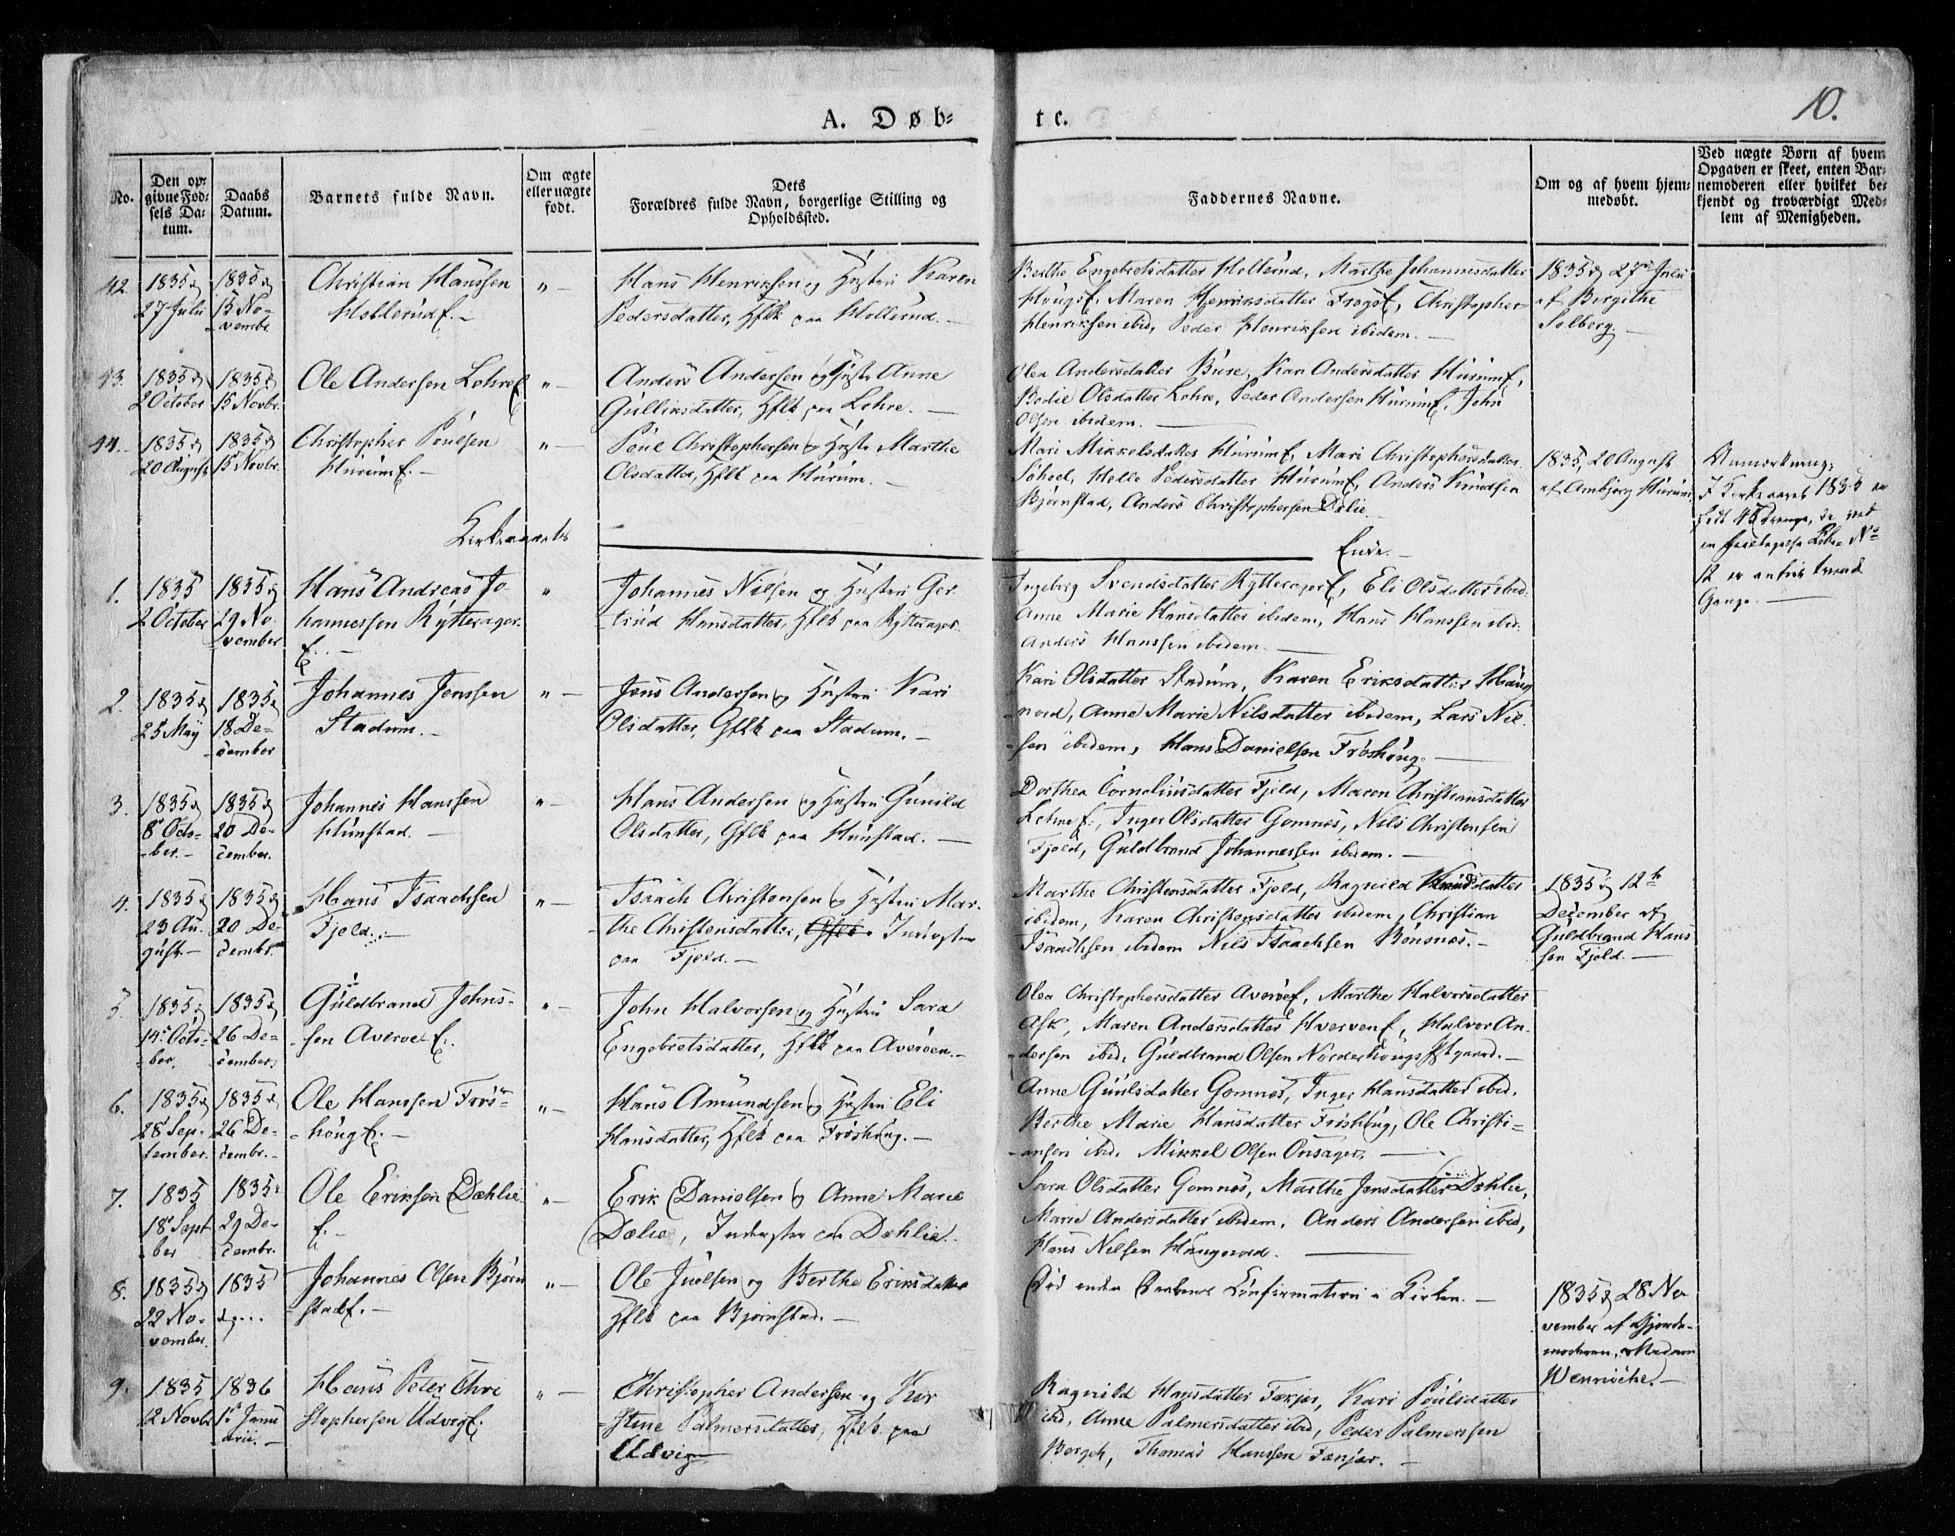 10.
A. Døb-te.
No.
Den op-
givne Fød-
sels Da-
tum.
Daabs
Datum.
Barnets fulde Navn.
Om ægte
eller uægte
født.
Dets
Forældres fulde Navn, borgerlige Stilling og
Opholdssted.
Faddernes Navne.
Om og af hvem hjem-
medøbt.
Ved uægte Børn af hvem
Opgaven er skeet, enten Bar-
nemoderen eller hvilket be-
kjendt og troværdigt Med-
lem af Menigheden.
42.
1835
27 Julii
1835
15 No-
vembr
Christian Hanssen
Hollerud
Hans Henriksen og Hustru Karen
Pedersdatter, Hflk paa Hollerud.
Berthe Engebretsdatter Hollerud, Marthe Johannesdatter
Maren Henriksdatter Christopher
Henriksen ibid, Peder Henriksen ibidem.
1835 27 Julii
af Birgithe
Solberg.
43.
1835
2 October
1835
15 Novbr.
Ole Andersen Lohre
Anders Andersen og Hustr Anne
Gulliksdatter, Hflk paa Lohre.
Olea Andersdatter Bure, Kari Andersdatter Hurum
Bodie Olsdatter Lohre, Peder Andersen Hurum, John
Olsen ibidem.
44.
1835
20 August
1835
15 Novbr.
Christopher Poulsen
Hurum
Poul Christophersen og Hustr Marthe
Olsdatter, Hflk paa Hurum.
Mari Mikkelsdatter Hurum, Mari Christophersdatter
Helle Pedersdatter Hurum, Anders Knudsen
Bjørnstad, Anders Christophersen Dælie.
1835, 20 August
af Ambjørg Hurum
Anmærkning:
I Kirkeaaret 1835 er
født 48 Drenge, da ved
en No
12 er anført tvende
Gange.
Kirkeaarets
Ende.
1.
1835
2 October
1835
29 No-
vember
Hans Andreas Jo-
hannessen Rytterager
Johannes Nilsen og Hustru Ger-
trud Hansdatter, Hflk paa Rytterager
Ingeborg Svendsdatter Rytterager, Eli Olsdatter ibid.
Anne Marie Hansdatter ibidem, Hans Hanssen ibid.
Anders Hanssen ibidem.
2.
1835
25 May
1835
18 De-
cember
Johannes Jenssen
Stadum.
Jens Andersen og Hustru Kari
Olsdatter, Gflk paa Stadum.
Kari Olsdatter Stadum, Karen Eriksdatter Haug-
nord, Anne Marie Nilsdatter ibidem, Lars Nil-
sen ibidem, Hans Danielsen Frøshoug.
3.
1835
8 Octo-
ber.
1835
20 De-
cember.
Johannes Hanssen
Hunstad.
Hans Andersen og Hustru Gunild
Olsdatter, Gflk paa Hunstad.
Dorthea Corneliusdatter Fjeld, Maren Christiansdatter
Lehne, Inger Olsdatter Gomnes, Nils Christensen
Fjeld, Guldbrand Johannessen ibidem.
4.
1835
23 Au-
gust.
1835
20 De-
cembr.
Hans Isaachsen
Fjeld.
Isaach Christensen og Hustru Mar-
the Christensdatter, Gflk. Inderster
paa Fjeld.
Marthe Christensdatter Fjeld, Ragnild Knudsdatter
ibidem, Karen Christensdatter ibidem, Christian
Isaachsen ibidem Nils Isaachsen Bønsnes.
1835 12te
December af
Guldbrand Hans-
sen Fjeld.
5.
1835
14 Octo-
ber.
1835
26 De-
cember.
Guldbrand Johns-
sen Averøe
John Halvorsen og Hustru Sara
Engebretsdatter, Hflk paa Averøen.
Olea Christophersdatter Averøe, Marthe Halvorsdatter
Ask, Maren Andersdatter Hverven, Halvor An-
dersen ibid, Guldbrand Olsen Norderhougs Pstgaard.
6.
1835
28 Sep-
tember.
1835
26 De-
cembr.
Ole Hanssen Frøs-
houg
Hans Amundsen og Hustru Eli
Hansdatter, Hflk paa Frøshoug.
Anne Guulsdatter Gomnes, Inger Hansdatter ibid.
Berthe Marie Hansdatter Frøshoug, Ole Christi-
ansen ibid. Mikkel Olsen Onsager.
7.
1835
18 Sept-
ber
1835
29 De-
cembr.
Ole Eriksen Dæhlie
Erik Danielsen og Anne Marie
Dælie, Inderster paa Dæhlie.
Sara Olsdatter Gomnes, Marthe Jensdatter Dæhlie,
Marie Andersdatter ibidem, Anders Andersen ibid,
Hans Nilsen Haugnord.
8.
1835
22 No-
vember
1835
Johannes Olsen Bjørn
stad.
Ole Juelsen og Berthe Eriksdatter
Hflk paa Bjørnstad.
Død inden Daabens Confirmation i Kirken.
1835 28 No-
vember af Gjorde-
moderen, Madam
Wenniche.
9.
1835
12 Novbr
1836
1 Janu-
arii.
Hans Peter Chri-
stophersen Udvig
Christopher Andersen og Kir-
stine Palmersdatter, Hflk paa
Udvig
Ragnild Hansdatter Fænjar, Kari Poulsdatter
ibid, Anne Palmersdatter ibid, Peder Palmerssen
Borgeh, Thomas Hanssen Fænjar.